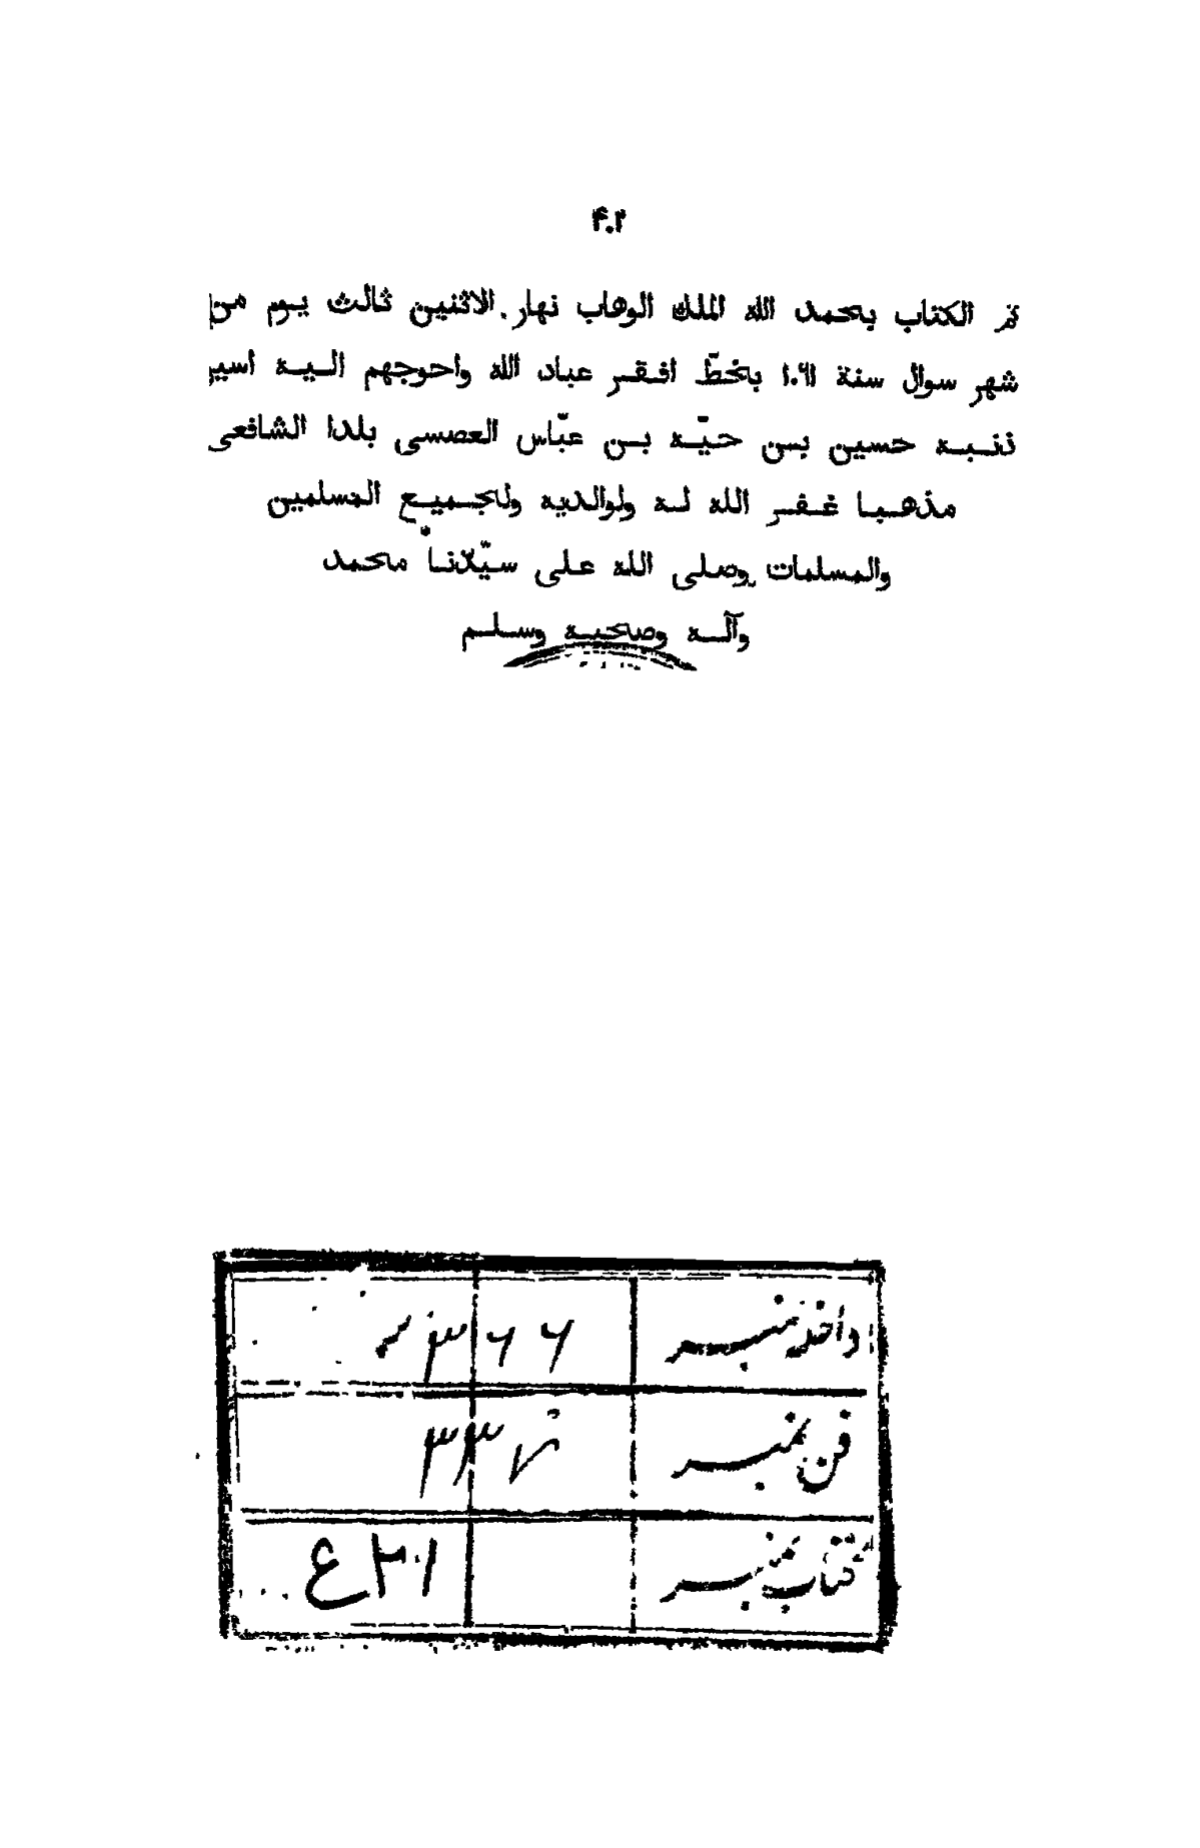 ۴۰۲
تم الكتاب بحمد الله الملك الوهاب نهار الاثنين ثالث يوم من
شهر سوال سنة ١٠٩١ بخطّ افقر عباد الله واحوجهم اليه اسير
ذنبه حسين بن حيّه بن عبّاس العصسى بلدا الشافعى
مذهبا غفر الله له ولوالديه ولجميع المسلمين
والمسلمات وصلى الله على سيّدنا محمد
وآله وصحبه وسلم
داخله نمبر
فن نمبر
كتاب نمبر